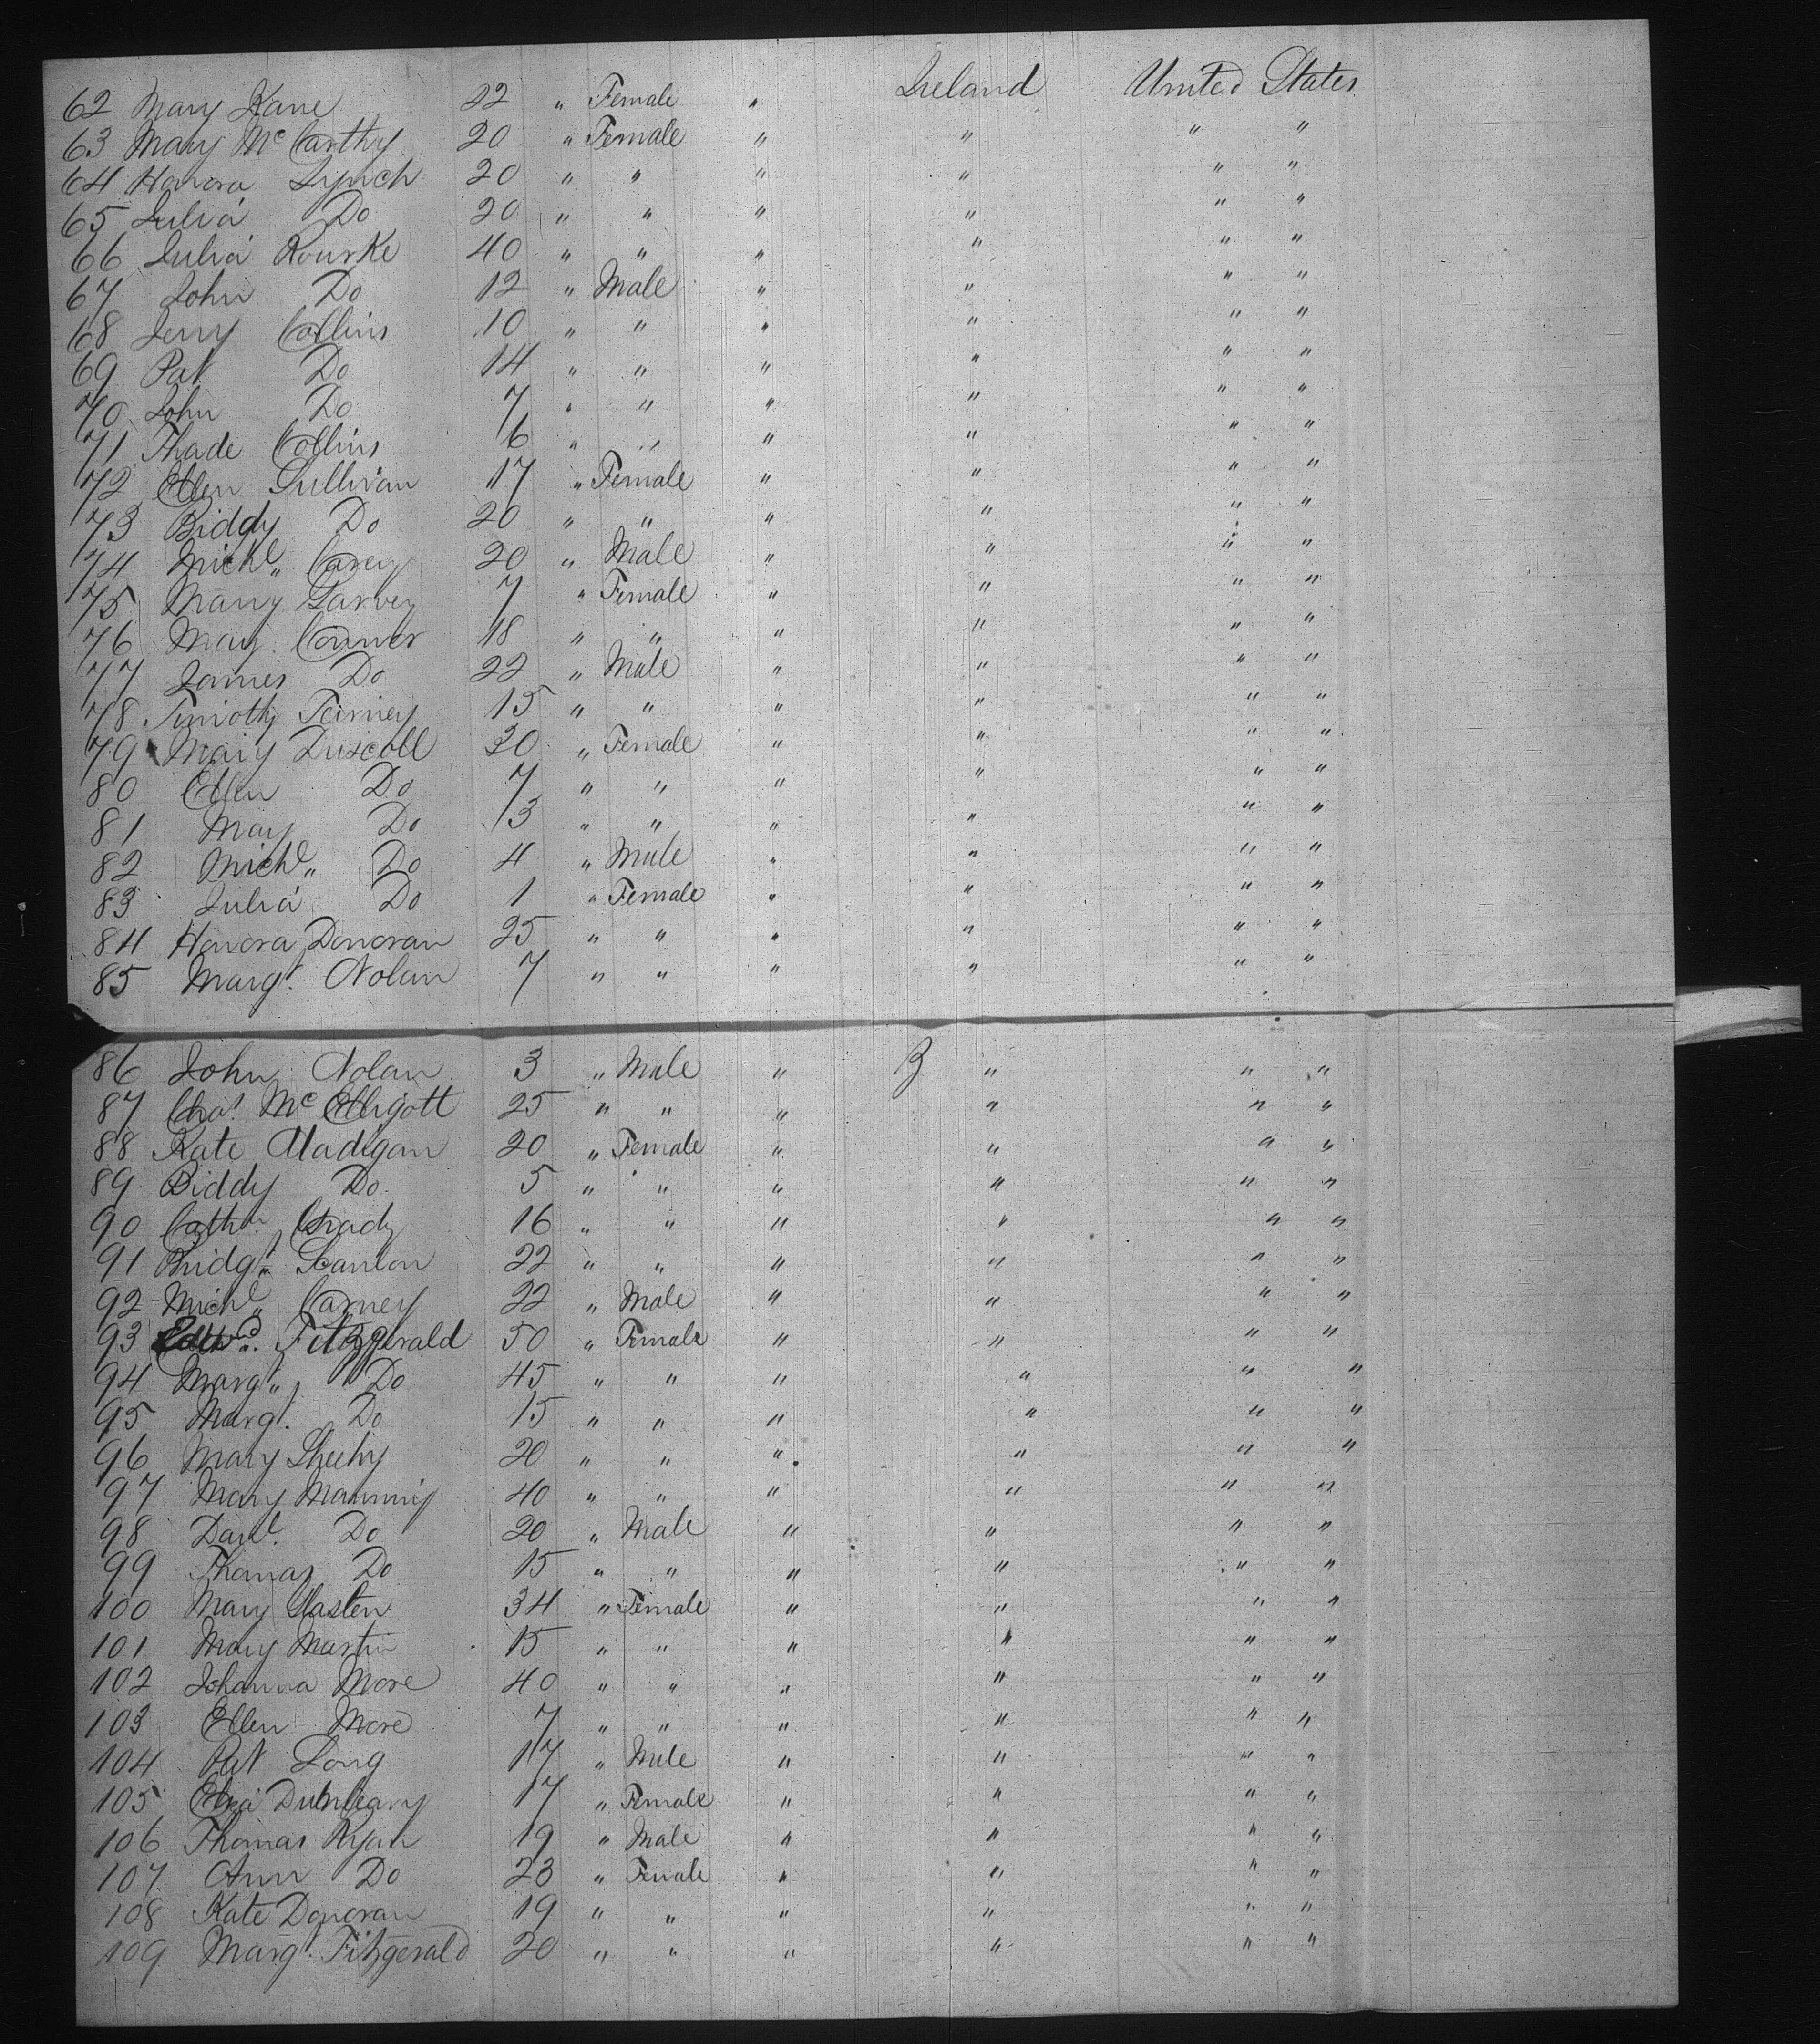 62 Mary Kane 22 " Female " Ireland United States
63 Mary McCarthy 20 " Female " " " "
64 Honora Lynch 20 " " " " " "
65 Julia Do 20 " " " " " "
66 Julia Rourke 40 " " " " " "
67 John Do 12 " Male " " " "
68 Jerry Collins 10 " " " " " "
69 Pat Do 14 " " " " " "
70 John Do 7 " " " " " "
71 Thade Collins 6 " " " " " "
72 Ellen Sullivan 17 " Female " " " "
73 Biddy Do 20 " " " " " "
74 Michl Carey 20 " Male " " " "
75 Mary Garvey 7 " Female " " " "
76 Mary Connor 18 " " " " " "
77 James Do 22 " Male " " " "
78 Timothy 15 " " " " " "
79 Mary Driscoll 30 " Female " " " "
80 Ellen Do 7 " " " " " "
81 Mary Do 13 " " " " " "
82 Michl Do 4 " Male " " " "
83 Julia Do 1 " Female " " " "
84 Honora Donovan 25 " " " " " "
85 Margt. Nolan 7 " " " " " "
86 John Nolan 3 " Male " 3 " " "
87 Chas. McElligott 25 " " " " " "
88 Kate Madigan 20 " Female " " " "
89 Biddy Do 5 " " " " " "
90 Cathn. Grady 16 " " " " " "
91 Bridgt Scanlon 22 " " " " " "
92 Michl Carney 22 " Male " " " "
93 Edwd. Fitzgerald 50 " Female " " " "
94 Margt Do 45 " " " " " "
95 Margt. Do 15 " " " " " "
96 Mary Sheehy 20 " " " " " "
97 Mary Manning 40 " " " " " "
98 Danl. Do 20 " Male " " " "
99 Thomas Do 15 " " " " " "
100 Mary 34 " Female " " " "
101 Mary Martin 15 " " " " " "
102 Johanna More 40 " " " " " "
103 Ellen More 7 " " " " " "
104 Pat Long 17 " Male " " " "
105 Eliza Dunleavy 17 " Female " " " "
106 Thomas Ryan 19 " Male " " " "
107 Ann Do 23 " Female " " " "
108 Kate Donovan 19 " " " " " "
109 Margt. Fitzgerald 20 " " " " " "